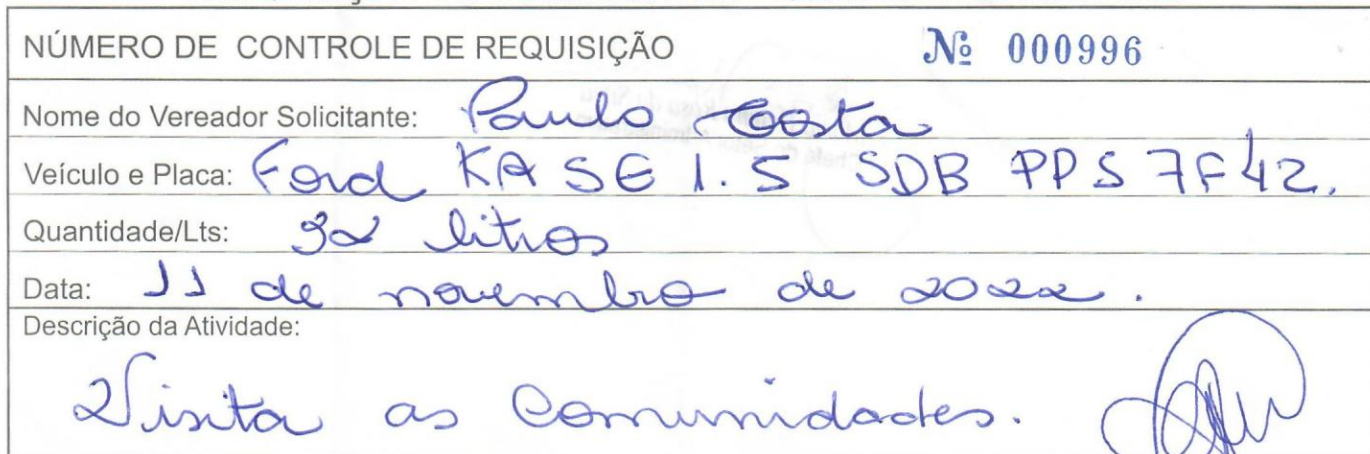 NÚMERO DE CONTROLE DE REQUISIÇÃO Nº 000996
Nome do Vereador Solicitante: Paulo Costa
Veículo e Placa: Ford KA SE 1.5 SDB PPS 7F42.
Quantidade/Lts: 32 litros
Data: 11 de novembro de 2022.
Descrição da Atividade:
Visita as Comunidades.